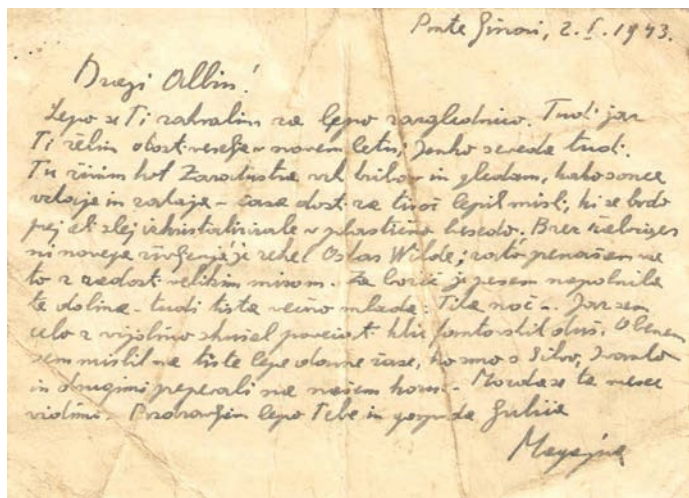 Ponte Ginori, 2. I. 1943.
Dragi Albin!
Lepo se Ti zahvalim za lepo razglednico. Tudi jaz
Ti želim obost veselja v novem letu; Janko seveda tudi.
Tu živim kot Zaratustra vrh hribov in gledam, kako sonce
vzhaja in zahaja – časa dosti za tisoč lepih misli, ki se bodo
prej ali slej izkristalizirale v plastično besedo. Brez
ni novega življenja je rekel Oskar Wilde; zato prenašam vse
to z velikim mirom. Za božič je pesem napolnila
te doline – tudi tista večno mlada: Tiha noč –. Jaz sem
celo z vijolino skušal povečati klic duš. Obenem
sem mislil na tiste lepe davne čase, ko smo s Silvo, Ivanko
in drugimi prepevali na našem koru. – Morda se ta mesec
vidimo – Pozdravljam lepo Tebe in gospoda